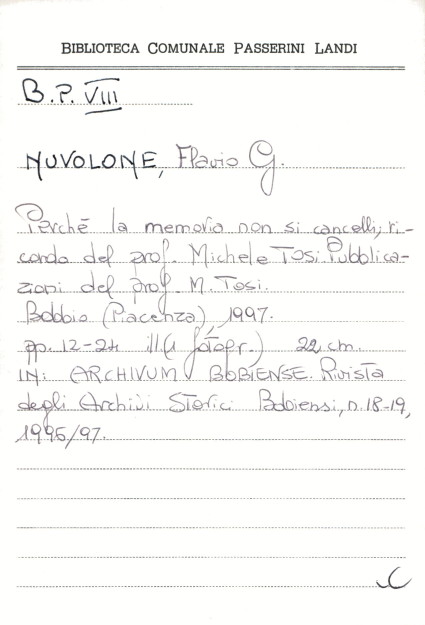 BIBLIOTECA COMUNALE PASSERINI LANDI
B.P. VIII
NUVOLONE, Flavio G.
Perchē la memoria non si cancelli; ri-
cordo del prof. Michele Tosi. Pubblica-
zioni del prof. M. Tosi.
Bobbio (Piacenza), 1997.
pp. 12-24 ill. (1 fotogr.) 22 cm.
IN: ARCHIVUM BOBIENSE. Rivista
degli Archivi Storici Bobiensi, n. 18-19,
1996/97.